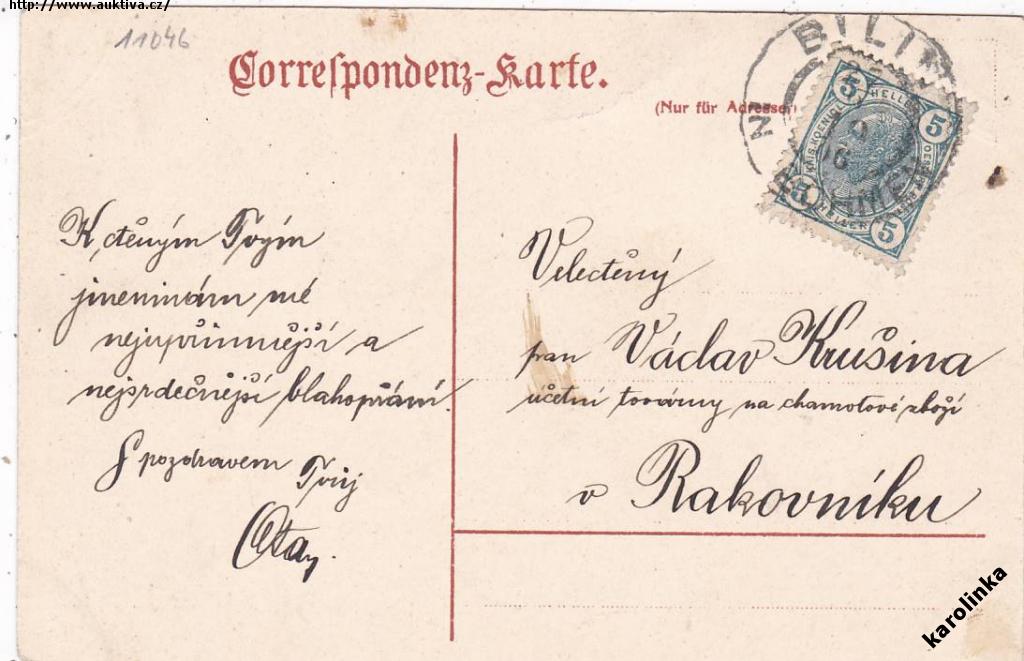 http://www.auktiva.cz/
11046
Correspondenz-Karte.
(Nur für Adresse.)
BILIN
5 HELLER 5
5 HELLER 5
K ctěným Tvým
jmeninám mé
nejupřímnější a
nejsrdečnější blahopřání.
S pozdravem Tvůj
Ota
Velectěný
pan Václav Krušina
účetní továrny na chamotové zboží
v Rakovníku
karolinka